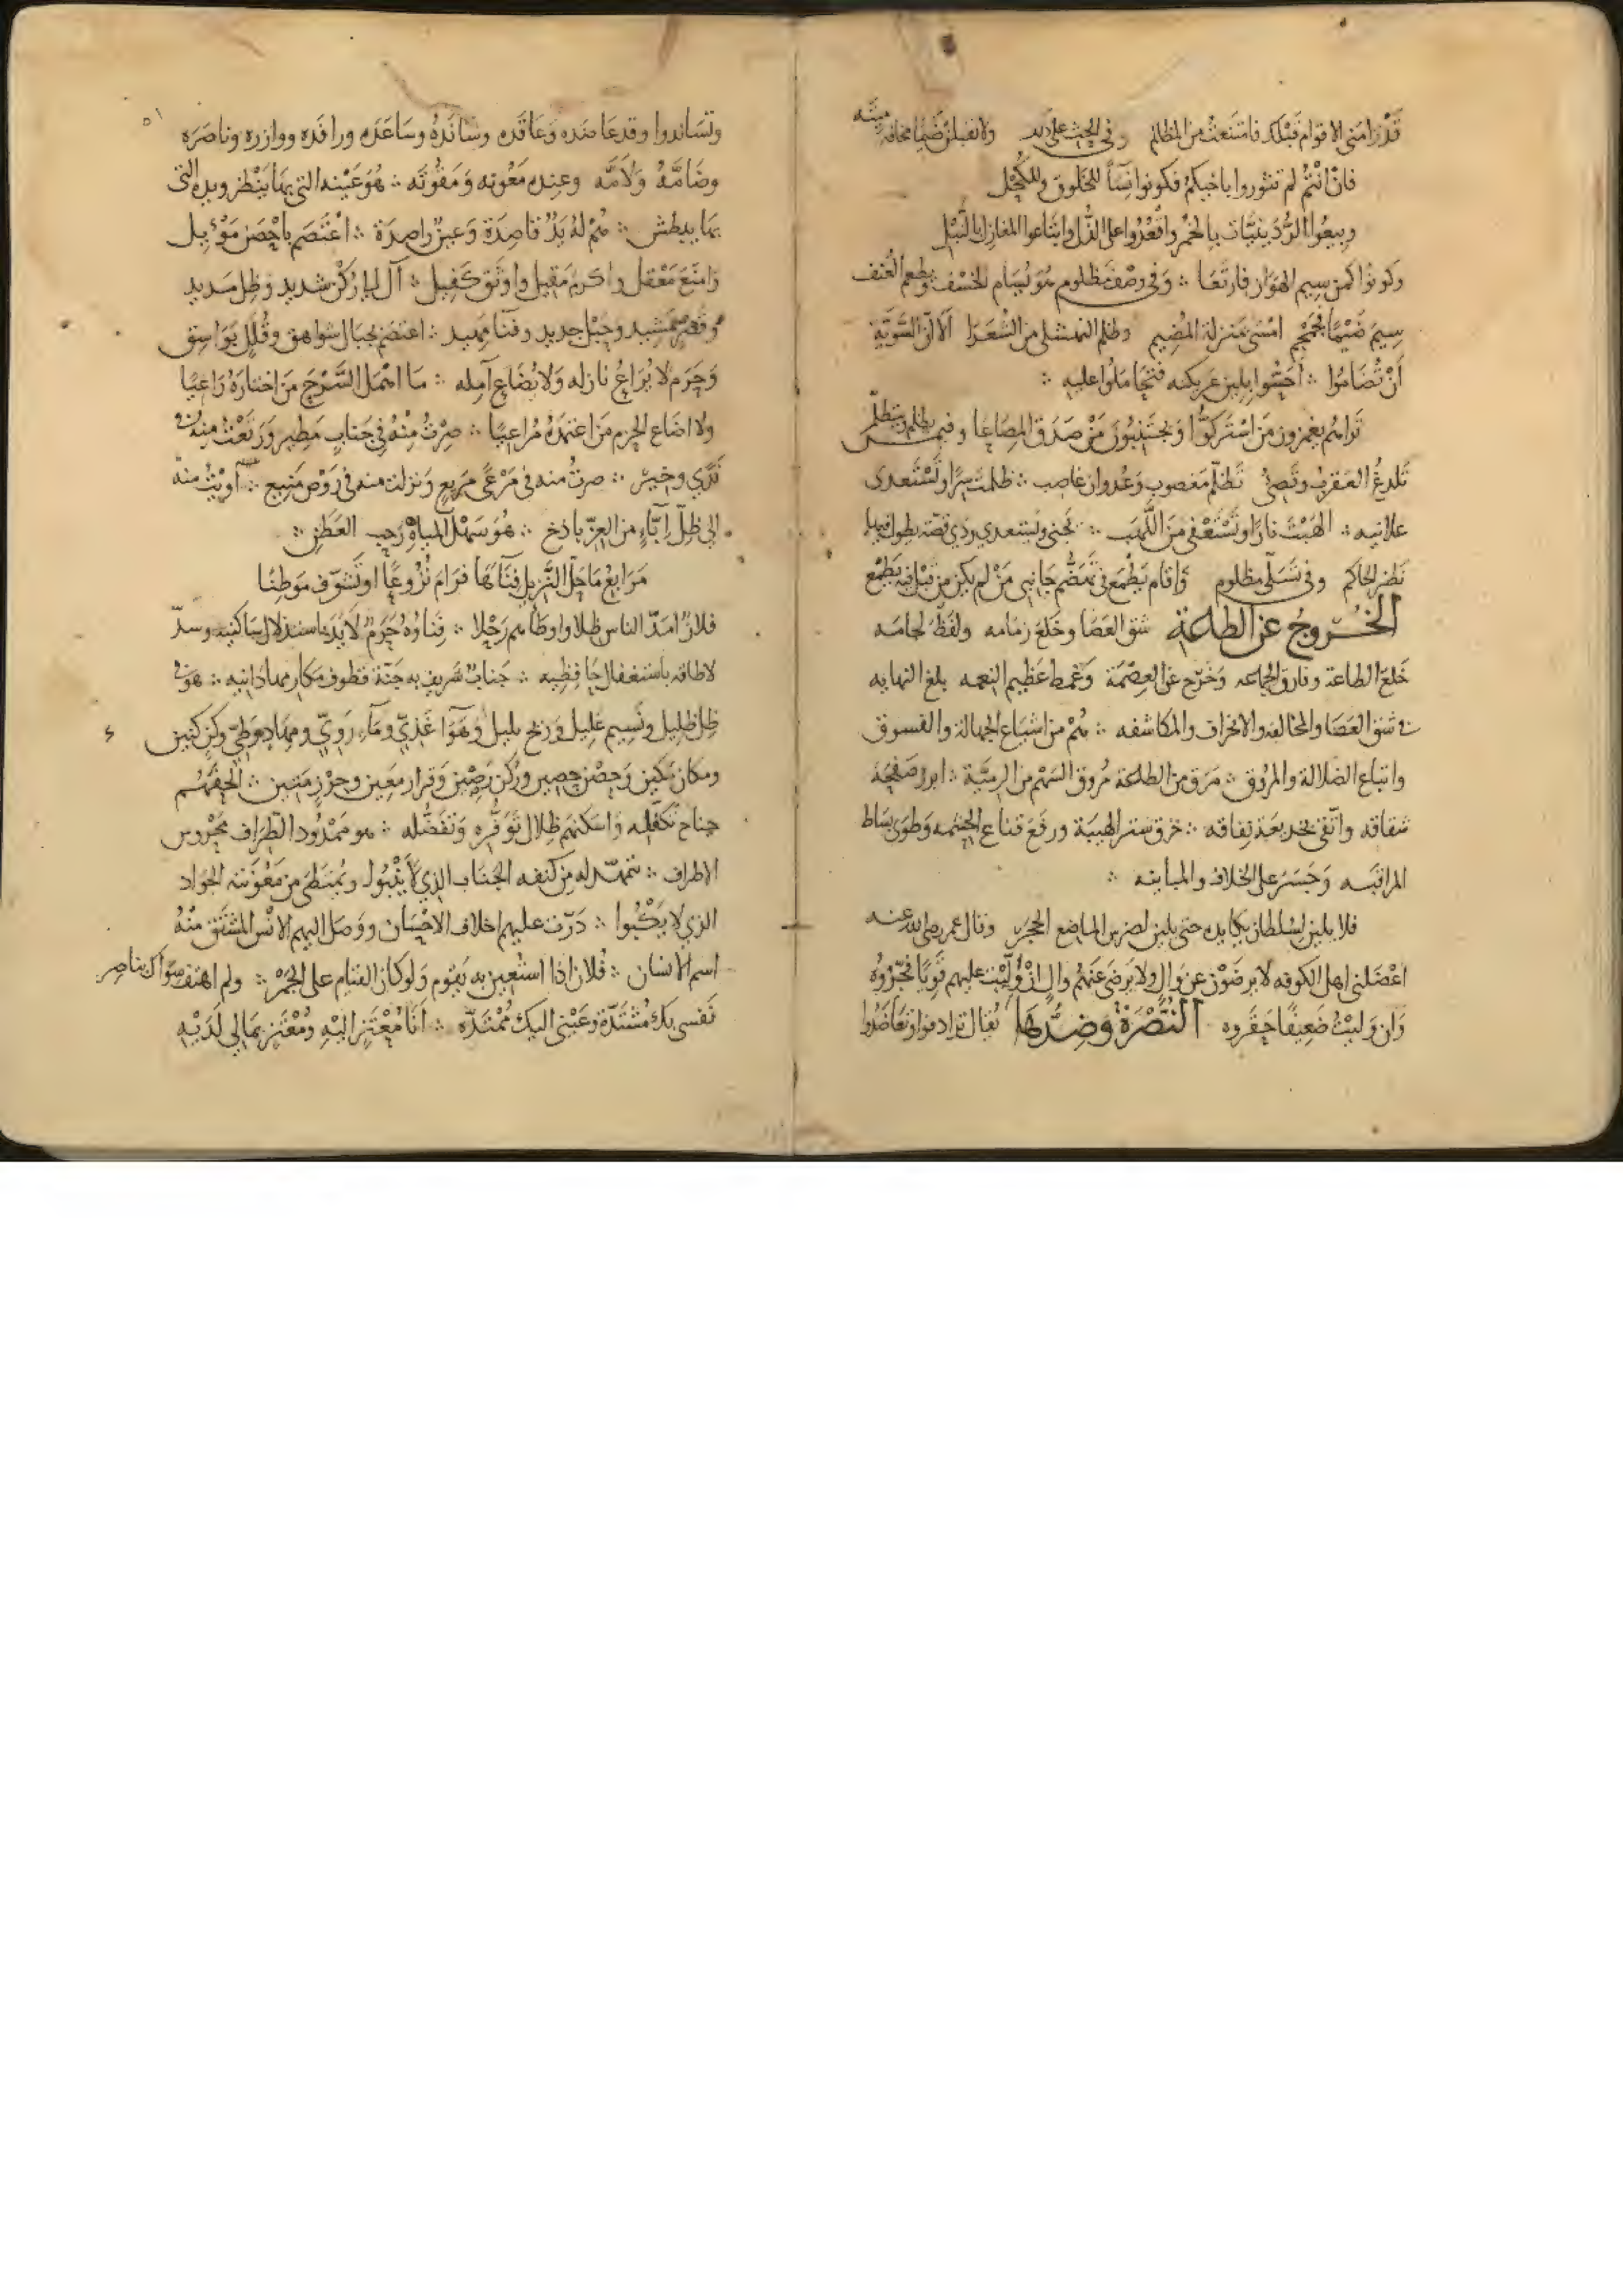 قَدْ رَامَنِي الاقوام قَبْلك فامتنعتُ من المظالم وفي الحث على ذلك ولا تقبلن ضَيْمًا مخافة مِيتَه
فانْ انتُمُ لم تثوروا باخيكمُ فكونوا نِسَآءً للخَلوق وللكُحْل
وبيعُوا الرُّدَيْنيَّات بالخُمْر واقْعُدُوا على الذُّل وابتاعوا المغازل بالنَّبْل
وكونوا كمن سِيم الهَوَان فارتَعَا ∴ وفي وصف مظلوم هُوَ يُسَام الخسْف ويطعم العُنف
سِيمَ ضَيْمًا امسَى بمَنزلة المَضِيم وظلم النهشلى من الشُعَرَا الَا انّ السَّويّة
اَنْ تُضَامُوا ∴ اَحسُّوا بلين عَريكته فتحَامَلوا عليه ∴
تَرَاهُم يغمزون مَن اسْتركوُّا وَيجتنِبُونَ مَنْ صَدَق المِصَاعَا وفيمن يظلم ويتظلّم
تَلدغُ العَقربُ وتَصِئُ تَظلّم مَغصوب وَعُدوان غاصب ∴ ظلمتَ سِرًّا وتَسْتَعدى
علانيه ∴ الهَبْتَ نارًا وتَسْتَعْفى مَن اللَّهَب ∴ تَجنى ويَستعدي وذي قصّة يطول فيها
نَظر الحاكم وفي تَسَلّى مظلوم وَاقام يَطْمَع في تَهَضُّم جَانِبى مَنْ لم يكن من قَبْل فيهِ يَطْمَع
الخُروجُ عن الطاعة شق العَصَا وخَلعَ زمَامه ولفَظ لجامَه
خَلعَ الطاعة وفارق الجماعه وَخَرَج عن العِصْمَة وَغمط عَظيم النعمه بلغ النهايه
في شق العَصَا والمخالفه والانحراف والمكاشفه ∴ هُمْ من اشياع الجهالة والفسوق
واتباع الضلالة والمرُوق ∴ مَرَق من الطاعة مُروقَ السَهْم من الرميَّة ∴ ابرز صَفْحَةَ
شقاقه واتّقى نفاقه ∴ خرق ستر الهَيبَة ورفَعَ قناع الحِشمه وَطوَى بسَاط
المراقبَه وَجَسَرَ على الخلاف والمباينه ∴
فلا يلين لسُلطان يكايده حتى يلين لضرس الماضِع الحَجَر وقال عمر رضى الله عنه
اعْضَلنى اهل الكوفه لا يرضَوْن عن وَالٍ ولا يرضى عَنهُم والٍ انْ وَلَّيْت عليهم قَويًّا فَجّرُوهُ
وَان وَليتُ ضَعِيفًا حَقَّروه النُّصْرَة وَضِدُّهَا يُقال ترادفوا وتعَاضَدُوا
٥١
وتسَاندوا وقد عَاضَدَه وَعَاقَدَه وسَانَدَهُ وسَاعَدَه ورافَدَه ووازره وناصَرَه
وضَامَّهُ وَلَاَمَّه وعنده مَعُونته وَمَقُوُته ∴ هُوَ عَيْنه التى بهَا ينْظر ويده التى
بهَا يبطش ∴ هُمْ لهُ يَدٌ قاصِدَة وَعينٌ راصِدَة ∴ اعْتَصَم باحْصَن مَوْئِل
وَامنَع مَعْقل واكرم مَقِيل واوثَق كَفِيل ∴ آل الى رُكْن شديد وَظِل مَديد
وقصْر مَّشِيد وحَبْل جديد وفنآء مهيد ∴ اعتصَم بجبَال شواهق وقُلَلٍ بَوَاسِق
وَحَرَم لا يُرَاعُ نازله وَلا يُضَاع آمِله ∴ مَا اهمَل السَّرْحَ مَن اختارَهُ رَاعيًا
ولا اضَاع الحزم مَن اعتمَدَهُ مُرَاعيًا ∴ صِرْتُ مِنْهُ في جَنابٍ مَطِير وَرَتَعْتُ منه في
نَدًى وخِيْر ∴ صرتُ منه في مَرْعًى مَريعٍ وَنزلت منه في رَوْض مَنِيع ∴ اَوَيْتُ منه
الى ظِلّ اِبَآءٍ من العِزّ باذخ ∴ هُوَ سَهْل المباهْ رَحِب العَطَن ∴
مَرَابِعُ مَا حَلّ النَّزيل فِنَآءَهَا فرَامَ نُزُوعًا او تَشوّف مَوْطِنًا
فلانٌ امَدّ الناس ظِلا واوطَاهم رَحْلا ∴ فِناؤهُ حَرَمٌ لا يَدَ باستذلال سَاكنِيه وسدّ
لا طاقة باستغفال حَافِظِيه ∴ جَنابٌ شَريف به جَنّة قطوف مكارمها دَانيه ∴ هوَ في
ظِل ظليل ونَسِيم عَليل وَريح بليل وَهَوَآءٍ غَذِيّ ومَآءٍ رَويّ ومِهَادٍ وَطِيّ وكِن كَنِين
ومكان مَكين وَحِصْن حَصِين ورُكن رَصِين وَقرار مَعِين وحِرْزٍ مَتِين ∴ الحَفَهُم
جناح تكفّله وَاسكنهم ظِلال تَوَفُّره وَتَفَضُّله ∴ هو مَمْدُود الطِّرَاف مَحْرُوس
الاطراف ∴ تمهّد له من كنفه الجَنَاب الذي لا يَنْبُوا ويُمتَطى من مَعُونته الجوَاد
الذي لا يَكْبُوا ∴ دَرّت عليهم اخلاف الاحْسَان ووَصَل اليهم الانْس المشتَق مِنْهُ
اسم الانسان ∴ فُلان اذا استُعِين به يَقوم وَلو كان القيَام على الجَمْر ∴ ولم اهتف سِوَاك بناصِر
نفسى بك مُشتَدّة وعَيْنى اليك مُمْتَدّه ∴ اَنَا مُعْتَزٍ اليْهِ ومُعْتَزٌّ بمَا لي لَدَيْهِ